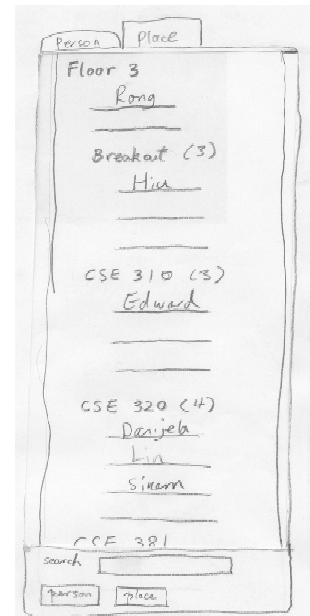 Person
Place
Floor 3
Rong
Breakout (3)
CSE 310 (3)
Edward
CSE 320 (4)
Danijela
Lin
CSE 381
search
person
place